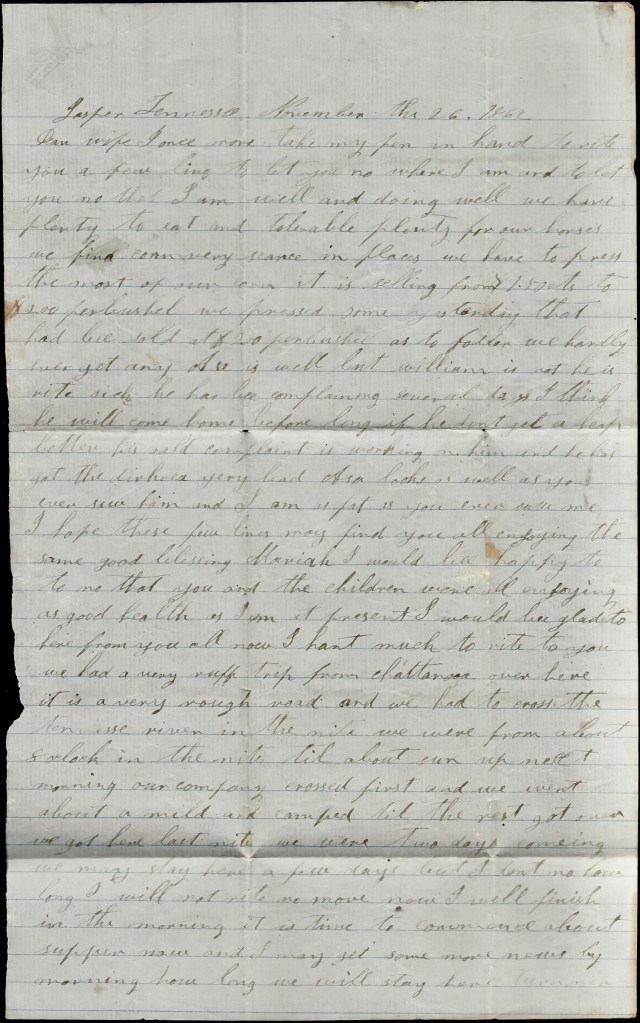 Jasper Tennessee November the 26. 1862
Dear wife I once more take my pen in hand to rite
you a few lins to let you no where I am and to let
you no that I am well and doing well we have
plenty to eat and tolerable plenty for our horses
we find corn very scarce in places we have to press
the most of our corn it is selling from to
200 perbushel we pressed some yesterday that
had bee sold at perbushel as to fodder we hardly
ever get any Asa is well but william is not he is
rite sick he has bee complaining several days I think
he will come home before long if he dont get a heap
better his old complaint is working on him and he has
got the very bad Asa looks as well as you
ever saw him and I am as fat as you ever saw me
I hope these few lines may find you all enjoying the
same good blessing Mariah I would bee happy to
to no that you and the children were all enjoying
as good health as I am at present I would bee glad to
here from you all now I hant much to rite to you
we had a very ruff trip from chattanooa over here
it is a very rough road and we had to cross the
tennesse river in the nite we were from about
8 oclock in the nite til about sun up next
morning our company crossed first and we went
about a mild and camped til the rest got over
we got here last nite we were two days comeing
we may stay here a few days but I dont no how
long I will not rite no more now I will finish
in the morning it is time to commence about
supper now and I may get some more news by
morning how long we will stay here